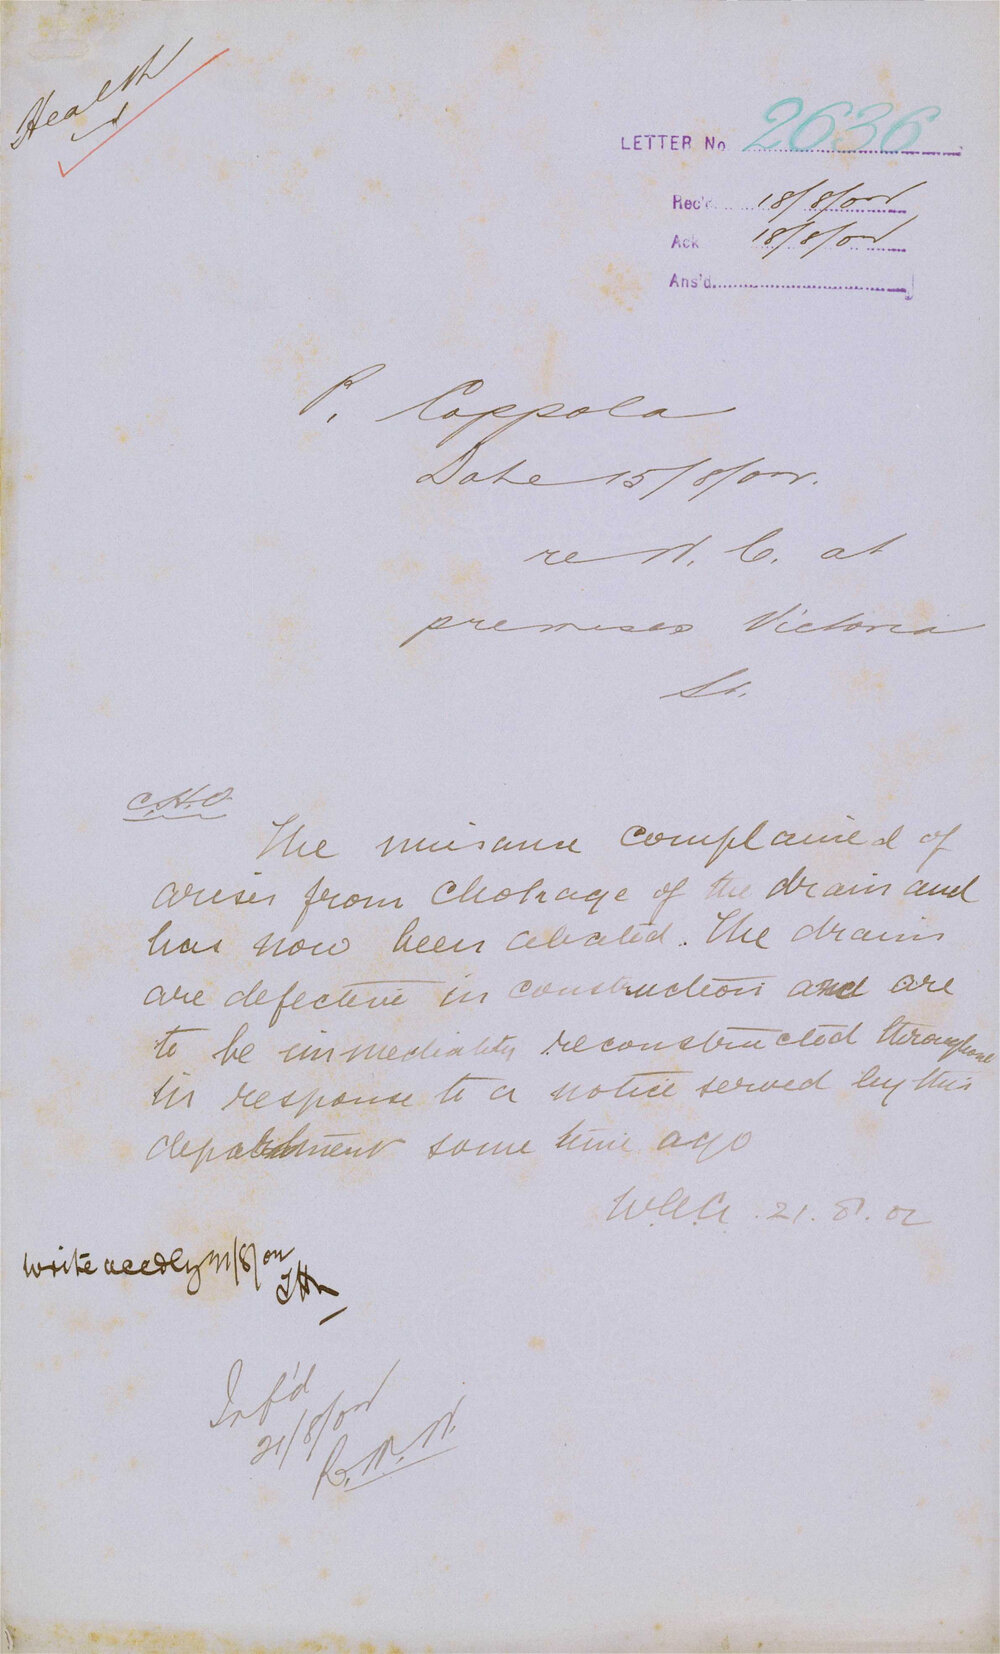 Health
LETTER No 2636
Rec'd 18/8/02
Ack 18/8/02
Ans'd
P. Coppola
Date 15/8/02.
re N. C. at
premises Victoria
St.
C.H.O
The nuisance complained of
arises from chokage of the drain and
has now been abated. The drains
are defective in construction and are
to be immediately reconstructed throughout
in response to a notice served by this
department some time ago
21.8.02
Write accdly 21/8/02
Inf'd
21/8/02